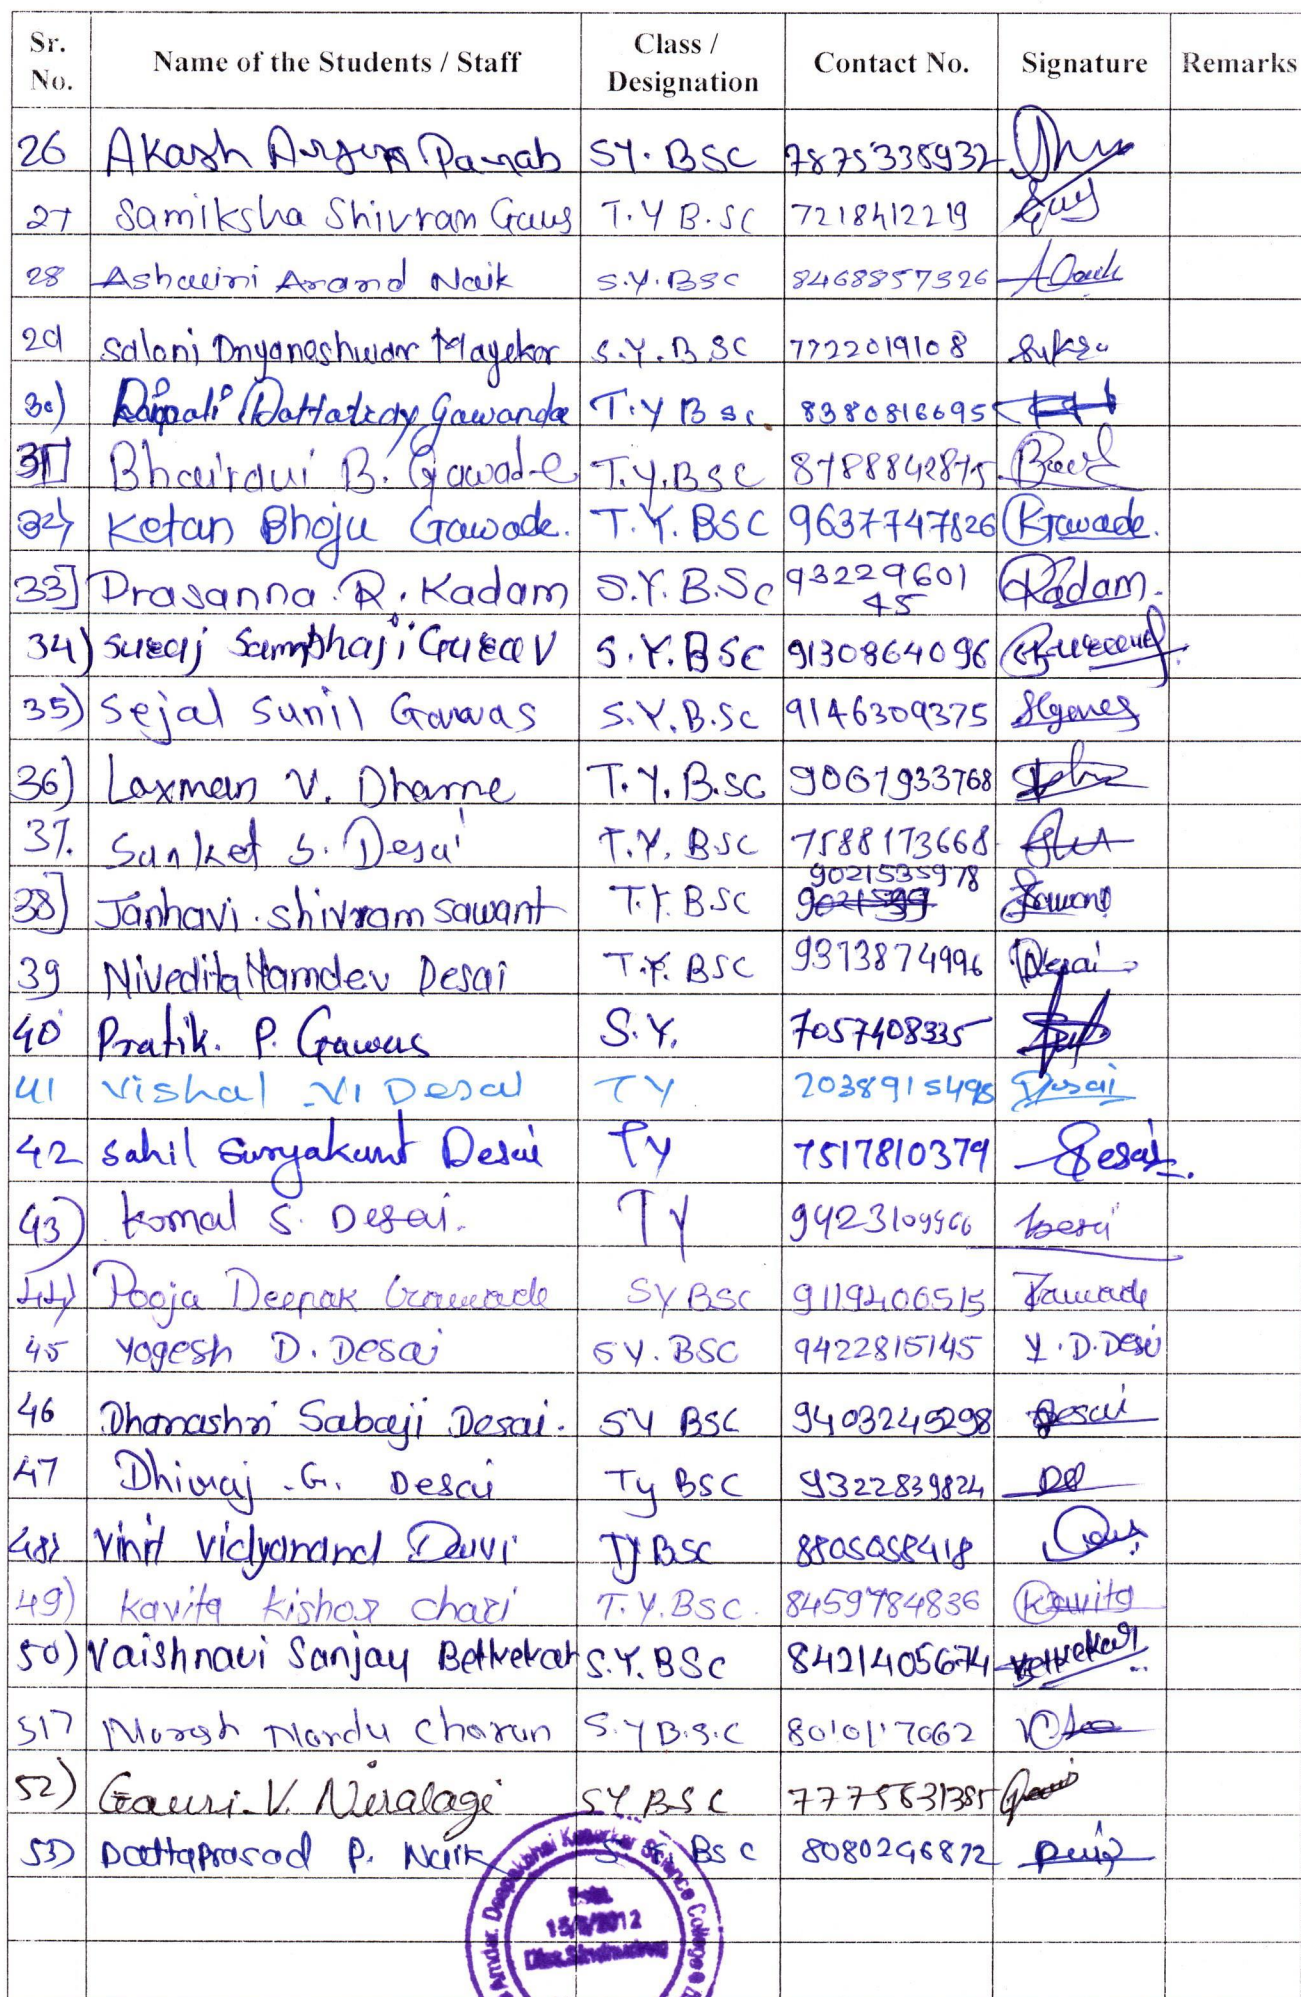 Sr. No. Name of the Students / Staff Class / Designation Contact No. Signature Remarks
26 Akash Arjun Parab SY. BSC 7875338932
27 Samiksha Shivram Gaus T.Y B.SC 7218412219
28 Ashwini Anand Naik S.Y.BSC 8468857326
29 Saloni Dnyaneshwar Mayekar S.Y.B SC 7722019108
30) Dipali Dattatray Gawande T.Y B sc. 8380816695
31] Bhairavi B. Gawade T.Y.BSC 8788842875
32) Ketan Bhoju Gawade. T.Y. BSC 9637747826 KGawade.
33] Prasanna R. Kadam S.Y.B.Sc 93229601 45 RKadam.
34) Suraj Sambhaji Gurav S.Y.BSC 9130864096
35) Sejal Sunil Gawas S.Y.B.SC 9146309375
36) Laxman V. Dharne T.Y.B.SC 9067933768
37. Sanket S. Desai T.Y. BSC 7588173668
38] Janhavi. Shivram Sawant T.Y. BSC 9021535978 Sawant
39 Nivedita Namdev Desai T.Y. BSC 9373874996 NDesai
40 Pratik. P. Gawas S.Y. 7057408335
41 Vishal V. Desai TY 2038915498 Desai
42 Sahil Suryakant Desai Ty 7517810379 Desai.
43) Komal S. Desai. TY 9423109966 Desai
44) Pooja Deepak Gawade SY BSC 9119406515 Gawade
45 Yogesh D. Desai SY. BSC 9422815145 Y.D.Desai
46 Dhanashri Sabaji Desai. SY BSC 9403245298 Desai
47 Dhiraj .G. Desai Ty BSC 9322839824
48) Vinit Vidyanand Dauvi Ty BSC 8805058418
49) Kavita Kishor Chari T.Y.BSC. 8459784836 Kavita
50) Vaishnavi Sanjay Betkekar S.Y. BSC 8421405674 Betkekar
51] Naresh Nandu Chavan S.Y B.S.C 8010117062
52) Gauri V. Niralagi SY BSC 7775831385
53) Dattaprasad P. Naik S.Y. BSC 8080296872
Amdar. Deepakbhai Kesarkar Science College
Estd.
15/8/2012
Dist.Sindhudurg